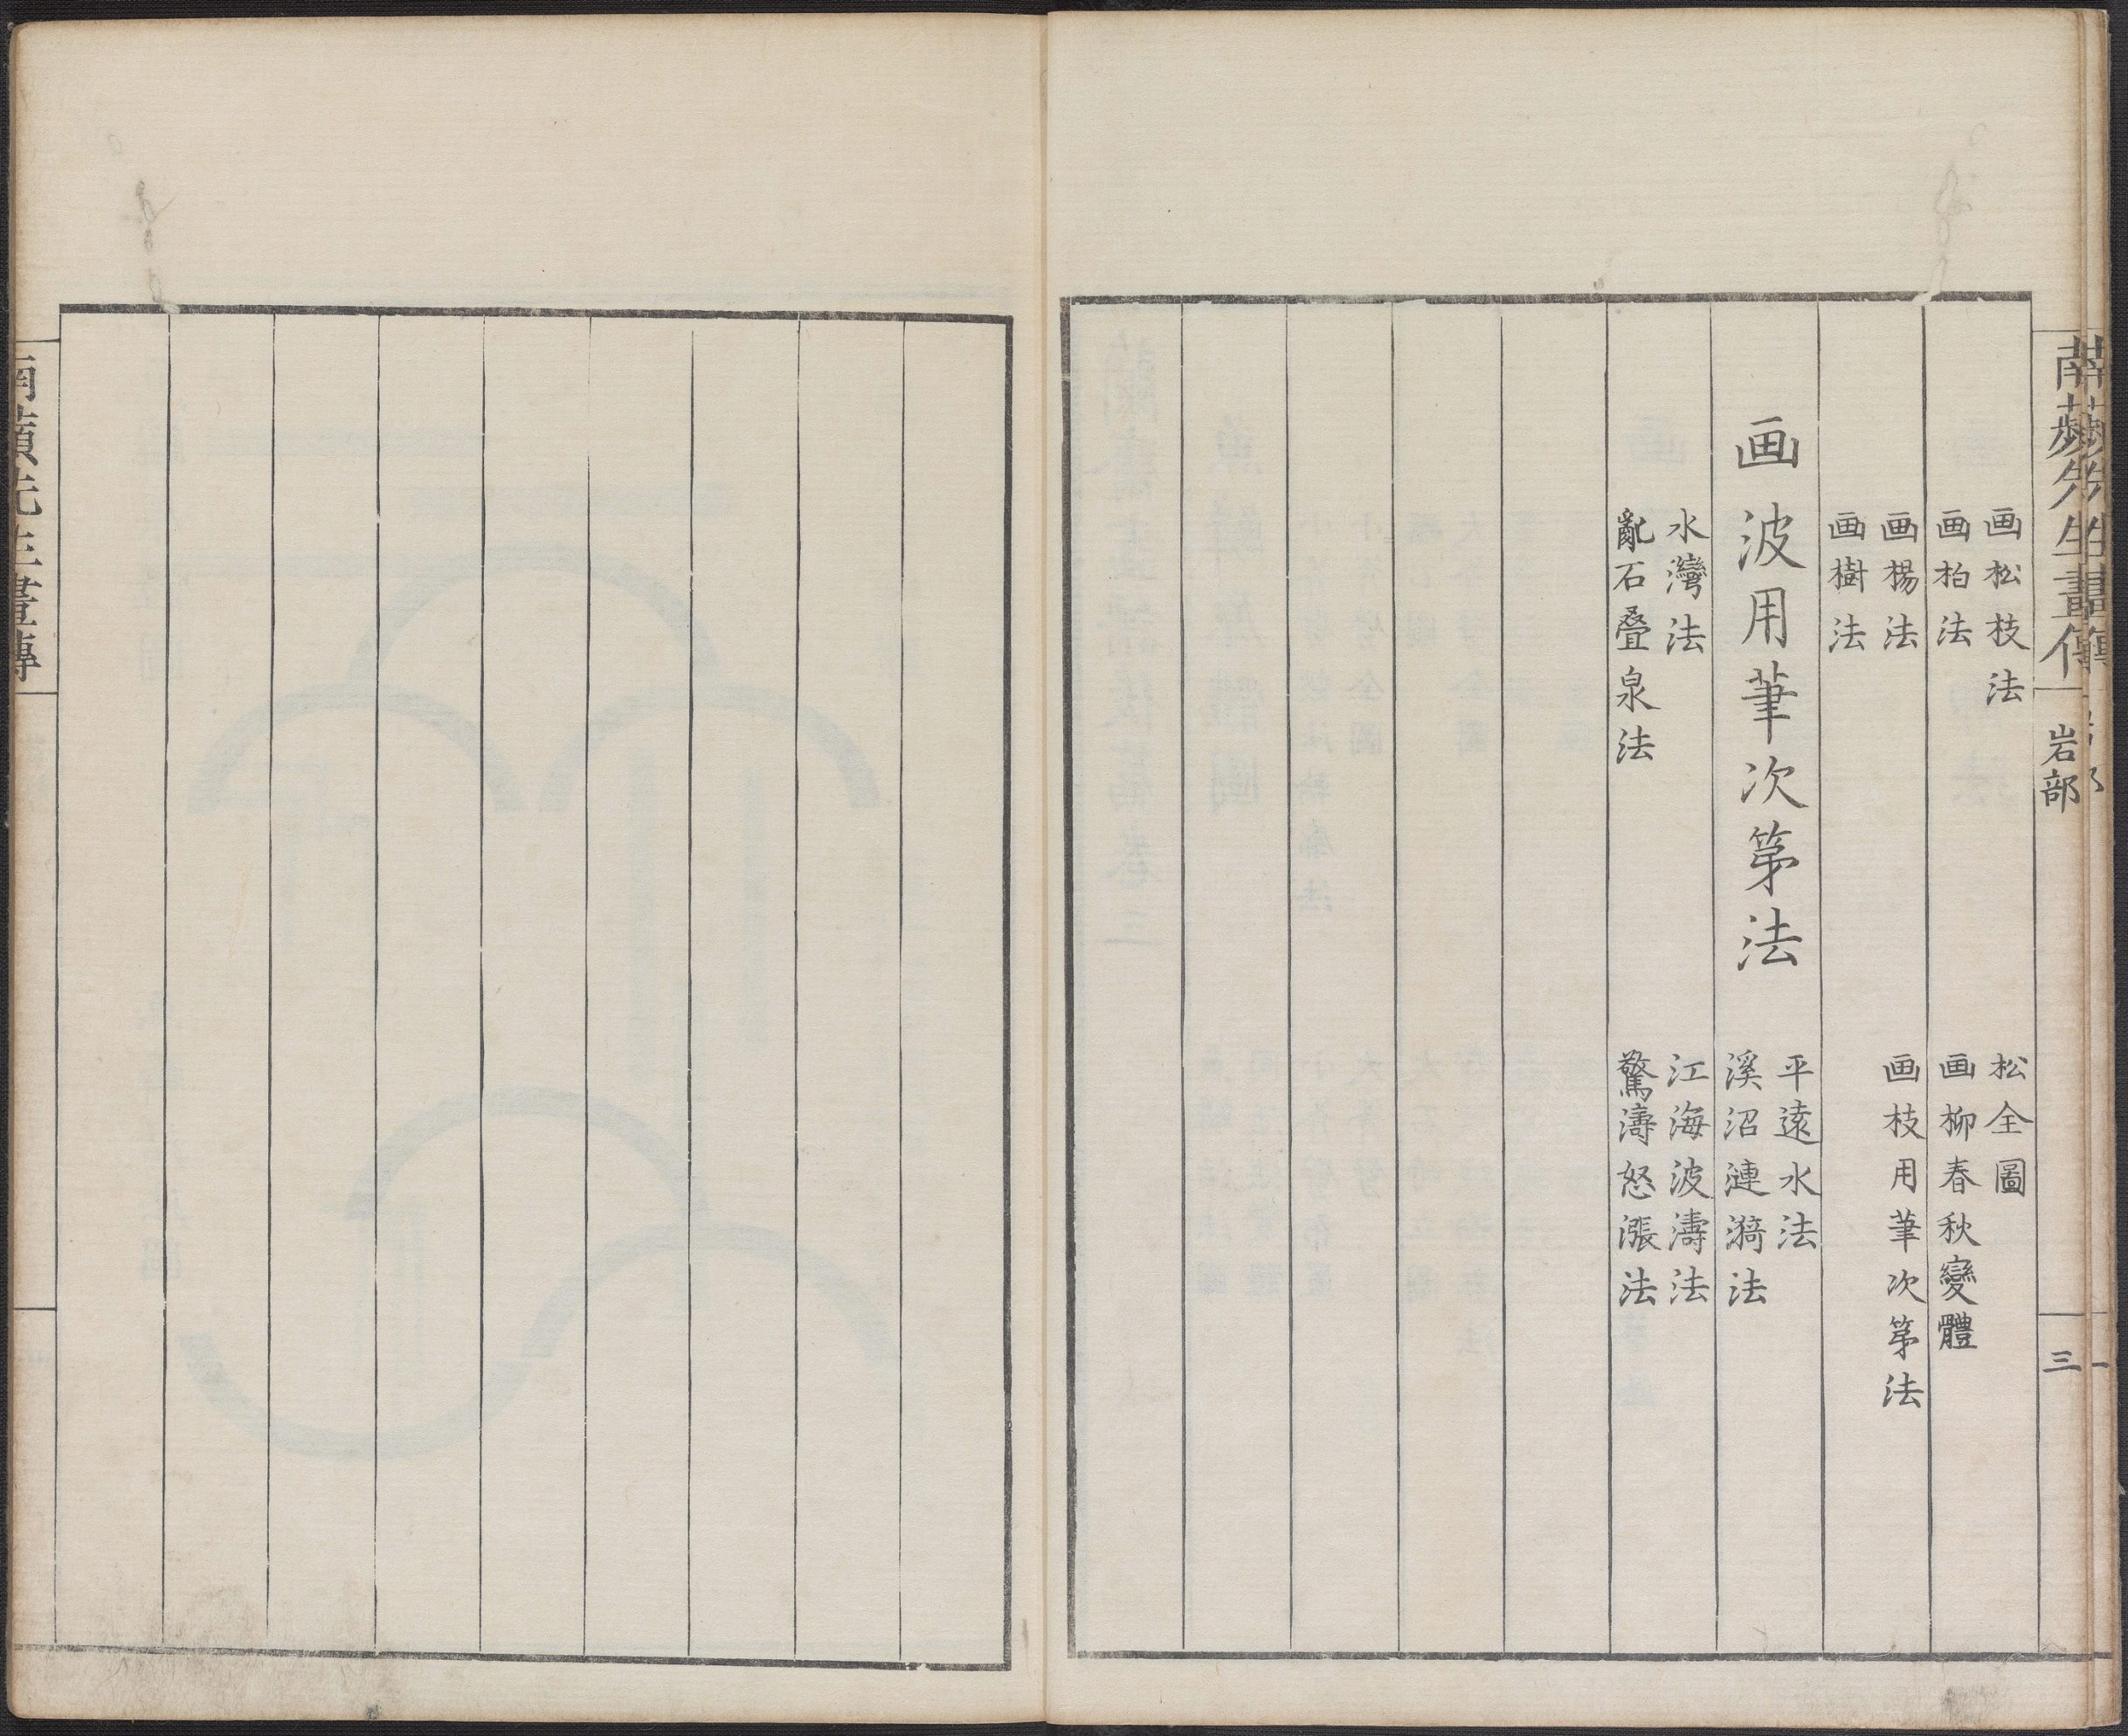 岩部
三
画松枝法
松全圖
画柏法
画柳春秋變體
画楊法
画枝用筆次第法
画樹法
平遠水法
画波用筆次第法
溪沼漣漪法
水灣法
江海波濤法
亂石疊泉法
驚濤怒漲法
先生畫傳